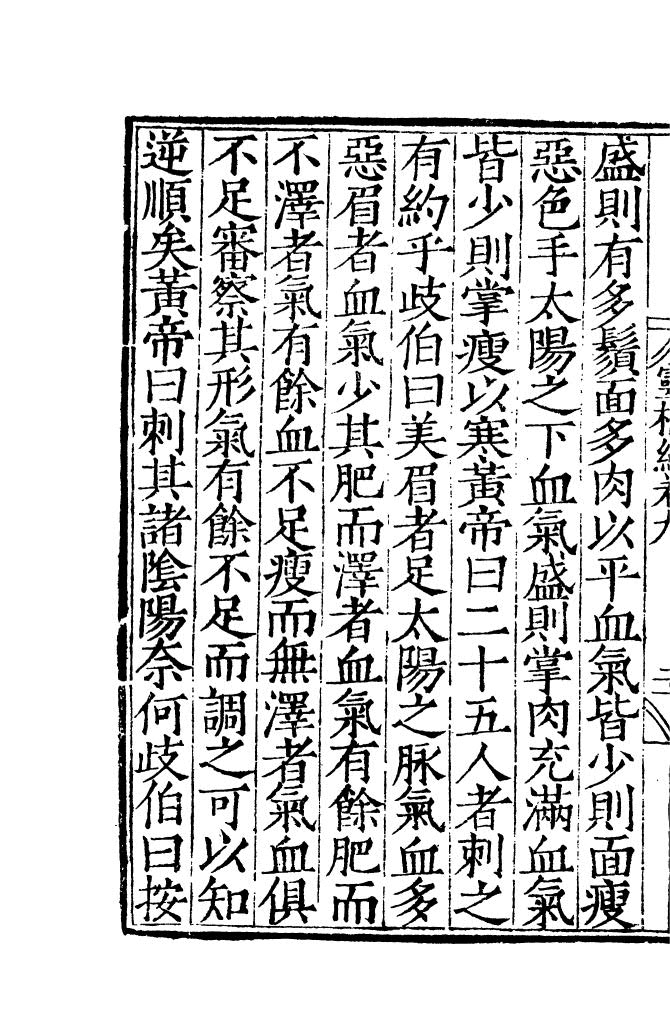 盛則有多鬚面多肉以平血氣皆少則面瘦
惡色手太陽之下血氣盛則掌肉充滿血氣
皆少則掌瘦以寒黃帝曰二十五人者刺之
有約乎歧伯曰美眉者足太陽之脉氣血多
惡眉者血氣少其肥而澤者血氣有餘肥而
不澤者氣有餘血不足瘦而無澤者氣血俱
不足審察其形氣有餘不足而調之可以知
逆順矣黃帝曰刺其諸陰陽奈何歧伯曰按